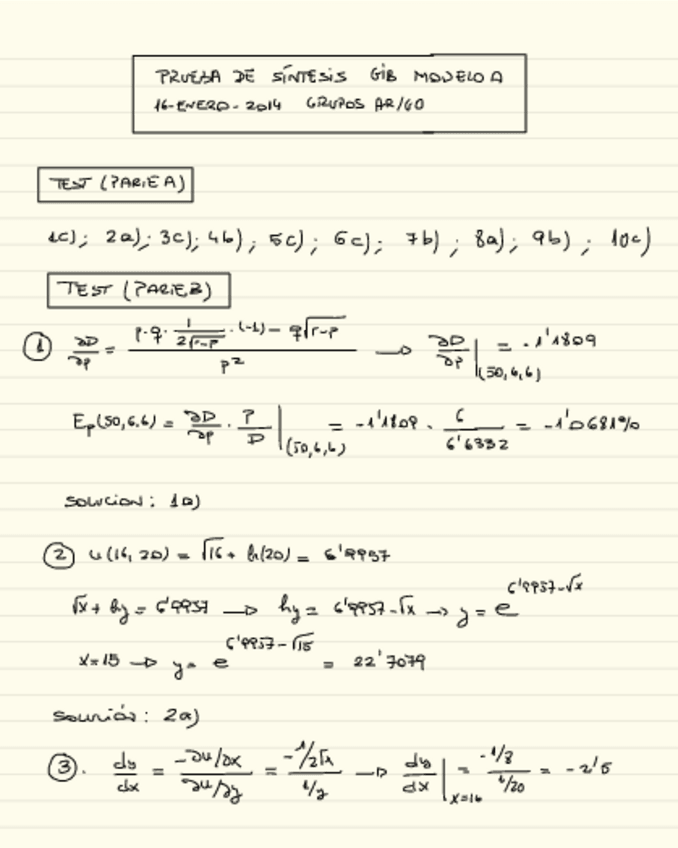 PRUEBA DE SÍNTESIS GIB MODELO A
16-ENERO-2014 GRUPOS AR/GO
TEST (PARTE A)
1c); 2a); 3c); 4b); 5c); 6c); 7b); 8a); 9b); 10c)
TEST (PARTE B)
① ∂D/∂p = (p·q·1/(2√(r-p))·(-1) - q√(r-p))/p² → ∂D/∂p|(50,6,6) = -1'1809
Ep(50,6,6) = ∂D/∂p · P/D |(50,6,6) = -1'1809 · 6/6'6332 = -1'0681%
SOLUCION: 1a)
② u(16, 20) = √16 + ln(20) = 6'9957
√x + lny = 6'9957 → lny = 6'9957-√x → y = e^(6'9957-√x)
x=15 → y = e^(6'9957-√15) = 22'7079
Solución: 2a)
③. dy/dx = (-∂u/∂x)/(∂u/∂y) = (-1/2√x)/(1/y) → dy/dx|x=16 = (-1/8)/(1/20) = -2'5